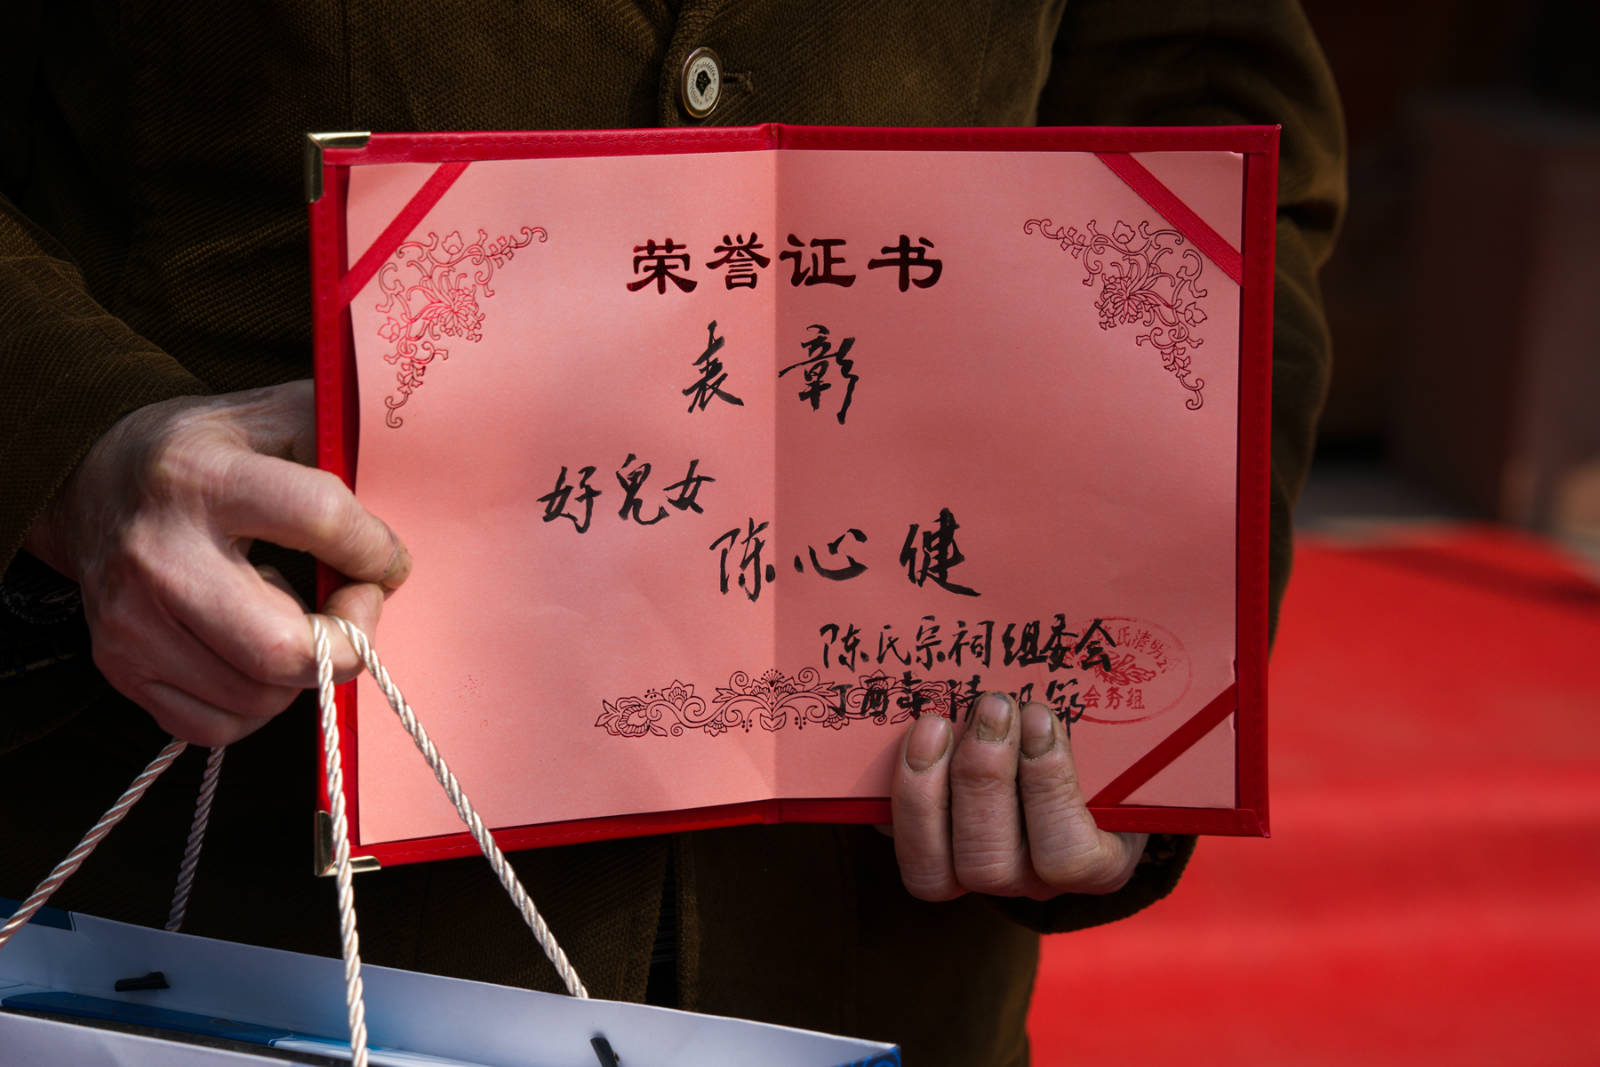 荣誉证书
表彰
好兒女
陈心健
陈氏宗祠组委会
丁酉年清明节
氏清明
会务组